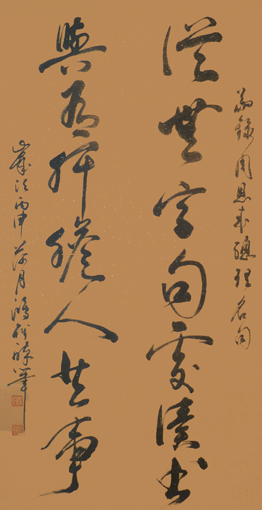 錄周恩來總理名句
從無字句處讀書
與有肝膽人共事
歲次丙申荷月